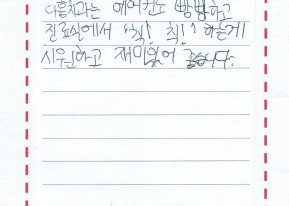 다움치과는 에어컨도 빵빵하고
진료실에서 "칙! 칙!" 하는게
시원하고 재미있어 좋습니다.